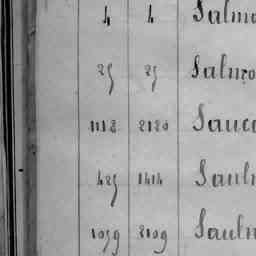 4 4 Salm
25 25 Salm
1118 2120 Sauc
425 1414 Sauln
1059 2109 Sauln